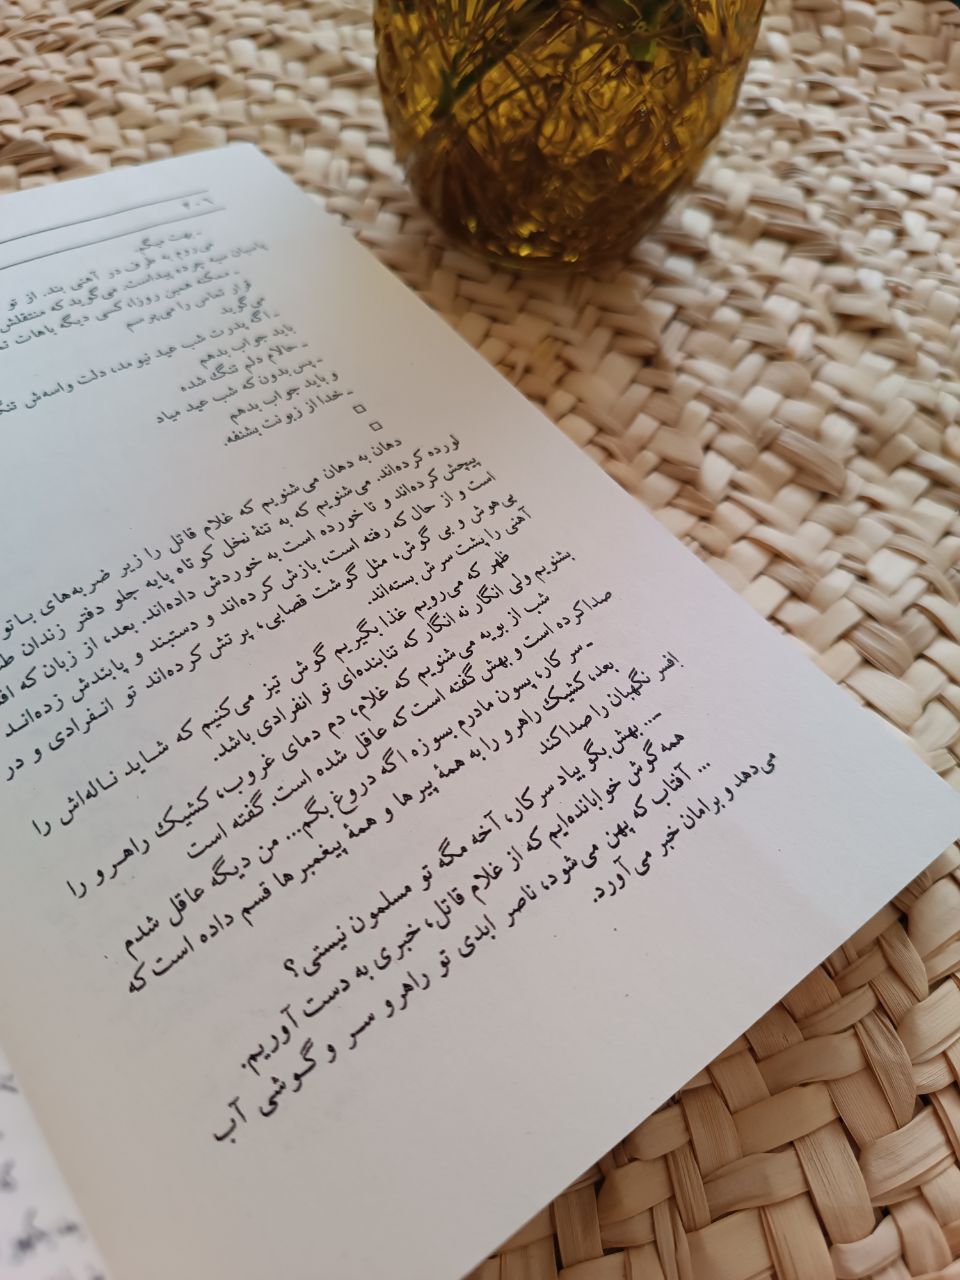 ۴۰۶
ـ بهت میگم
می‌روم به طرف در آهنی بند. از تو
پاسبان سیه چرده پیداست. می‌گوید که منتقلش
ـ ممکنه همین روزا، کسی دیگه باهات
قرار تماس را می‌پرسم
می‌گوید
ـ اگه پدرت شب عید نیومد، دلت واسه‌ش
باید جواب بدهم
ـ حالام دلم تنگ شده
ـ پس بدون که شب عید میاد
و باید جواب بدهم
ـ خدا از زبونت بشنفه.
دهان به دهان می‌شنویم که غلام قاتل را زیر ضربه‌های باتو
لورده کرده‌اند. می‌شنویم که به تنهٔ نخل کوتاه پایه جلو دفتر زندان
پیچش کرده‌اند و تا خورده است به خوردش داده‌اند. بعد، از زبان که
است و از حال که رفته است، بازش کرده‌اند و دستبند و پابندش زده‌اند
بی‌هوش و بی گوش، مثل گوشت قصابی، پرتش کرده‌اند تو انفرادی و در
آهنی را پشت سرش بسته‌اند.
ظهر که می‌رویم غذا بگیریم گوش تیز می‌کنیم که شاید ناله‌اش را
بشنویم ولی انگار نه انگار که تنابنده‌ای تو انفرادی باشد.
شب از بویه می‌شنویم که غلام، دم دمای غروب، کشیک راهرو را
صدا کرده است و بهش گفته است که عاقل شده است. گفته است
ـ سرکار، پسون مادرم بسوزه اگه دروغ بگم... من دیگه عاقل شدم
بعد، کشیک راهرو را به همهٔ پیرها و همهٔ پیغمبرها قسم داده است که
افسر نگهبان را صدا کند
ـ... بهش بگو بیاد سرکار، آخه مگه تو مسلمون نیستی؟
همه گوش خوابانده‌ایم که از غلام قاتل، خبری به دست آوریم.
... آفتاب که پهن می‌شود، ناصر ابدی تو راهرو سر و گوشی آب
می‌دهد و برامان خبر می‌آورد.